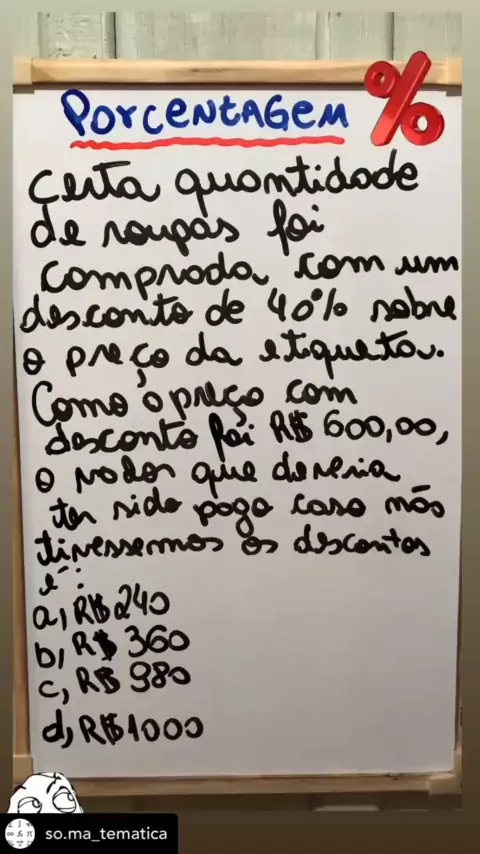 PORCENTAGEM %
Certa quantidade
de roupas foi
comprada com um
desconto de 40% sobre
o preço da etiqueta.
Como o preço com
desconto foi R$ 600,00,
o valor que deveria
ter sido pago caso não
tivessemos os descontos
é:
a) R$ 240
b) R$ 360
c) R$ 980
d) R$ 1000
so.ma_tematica